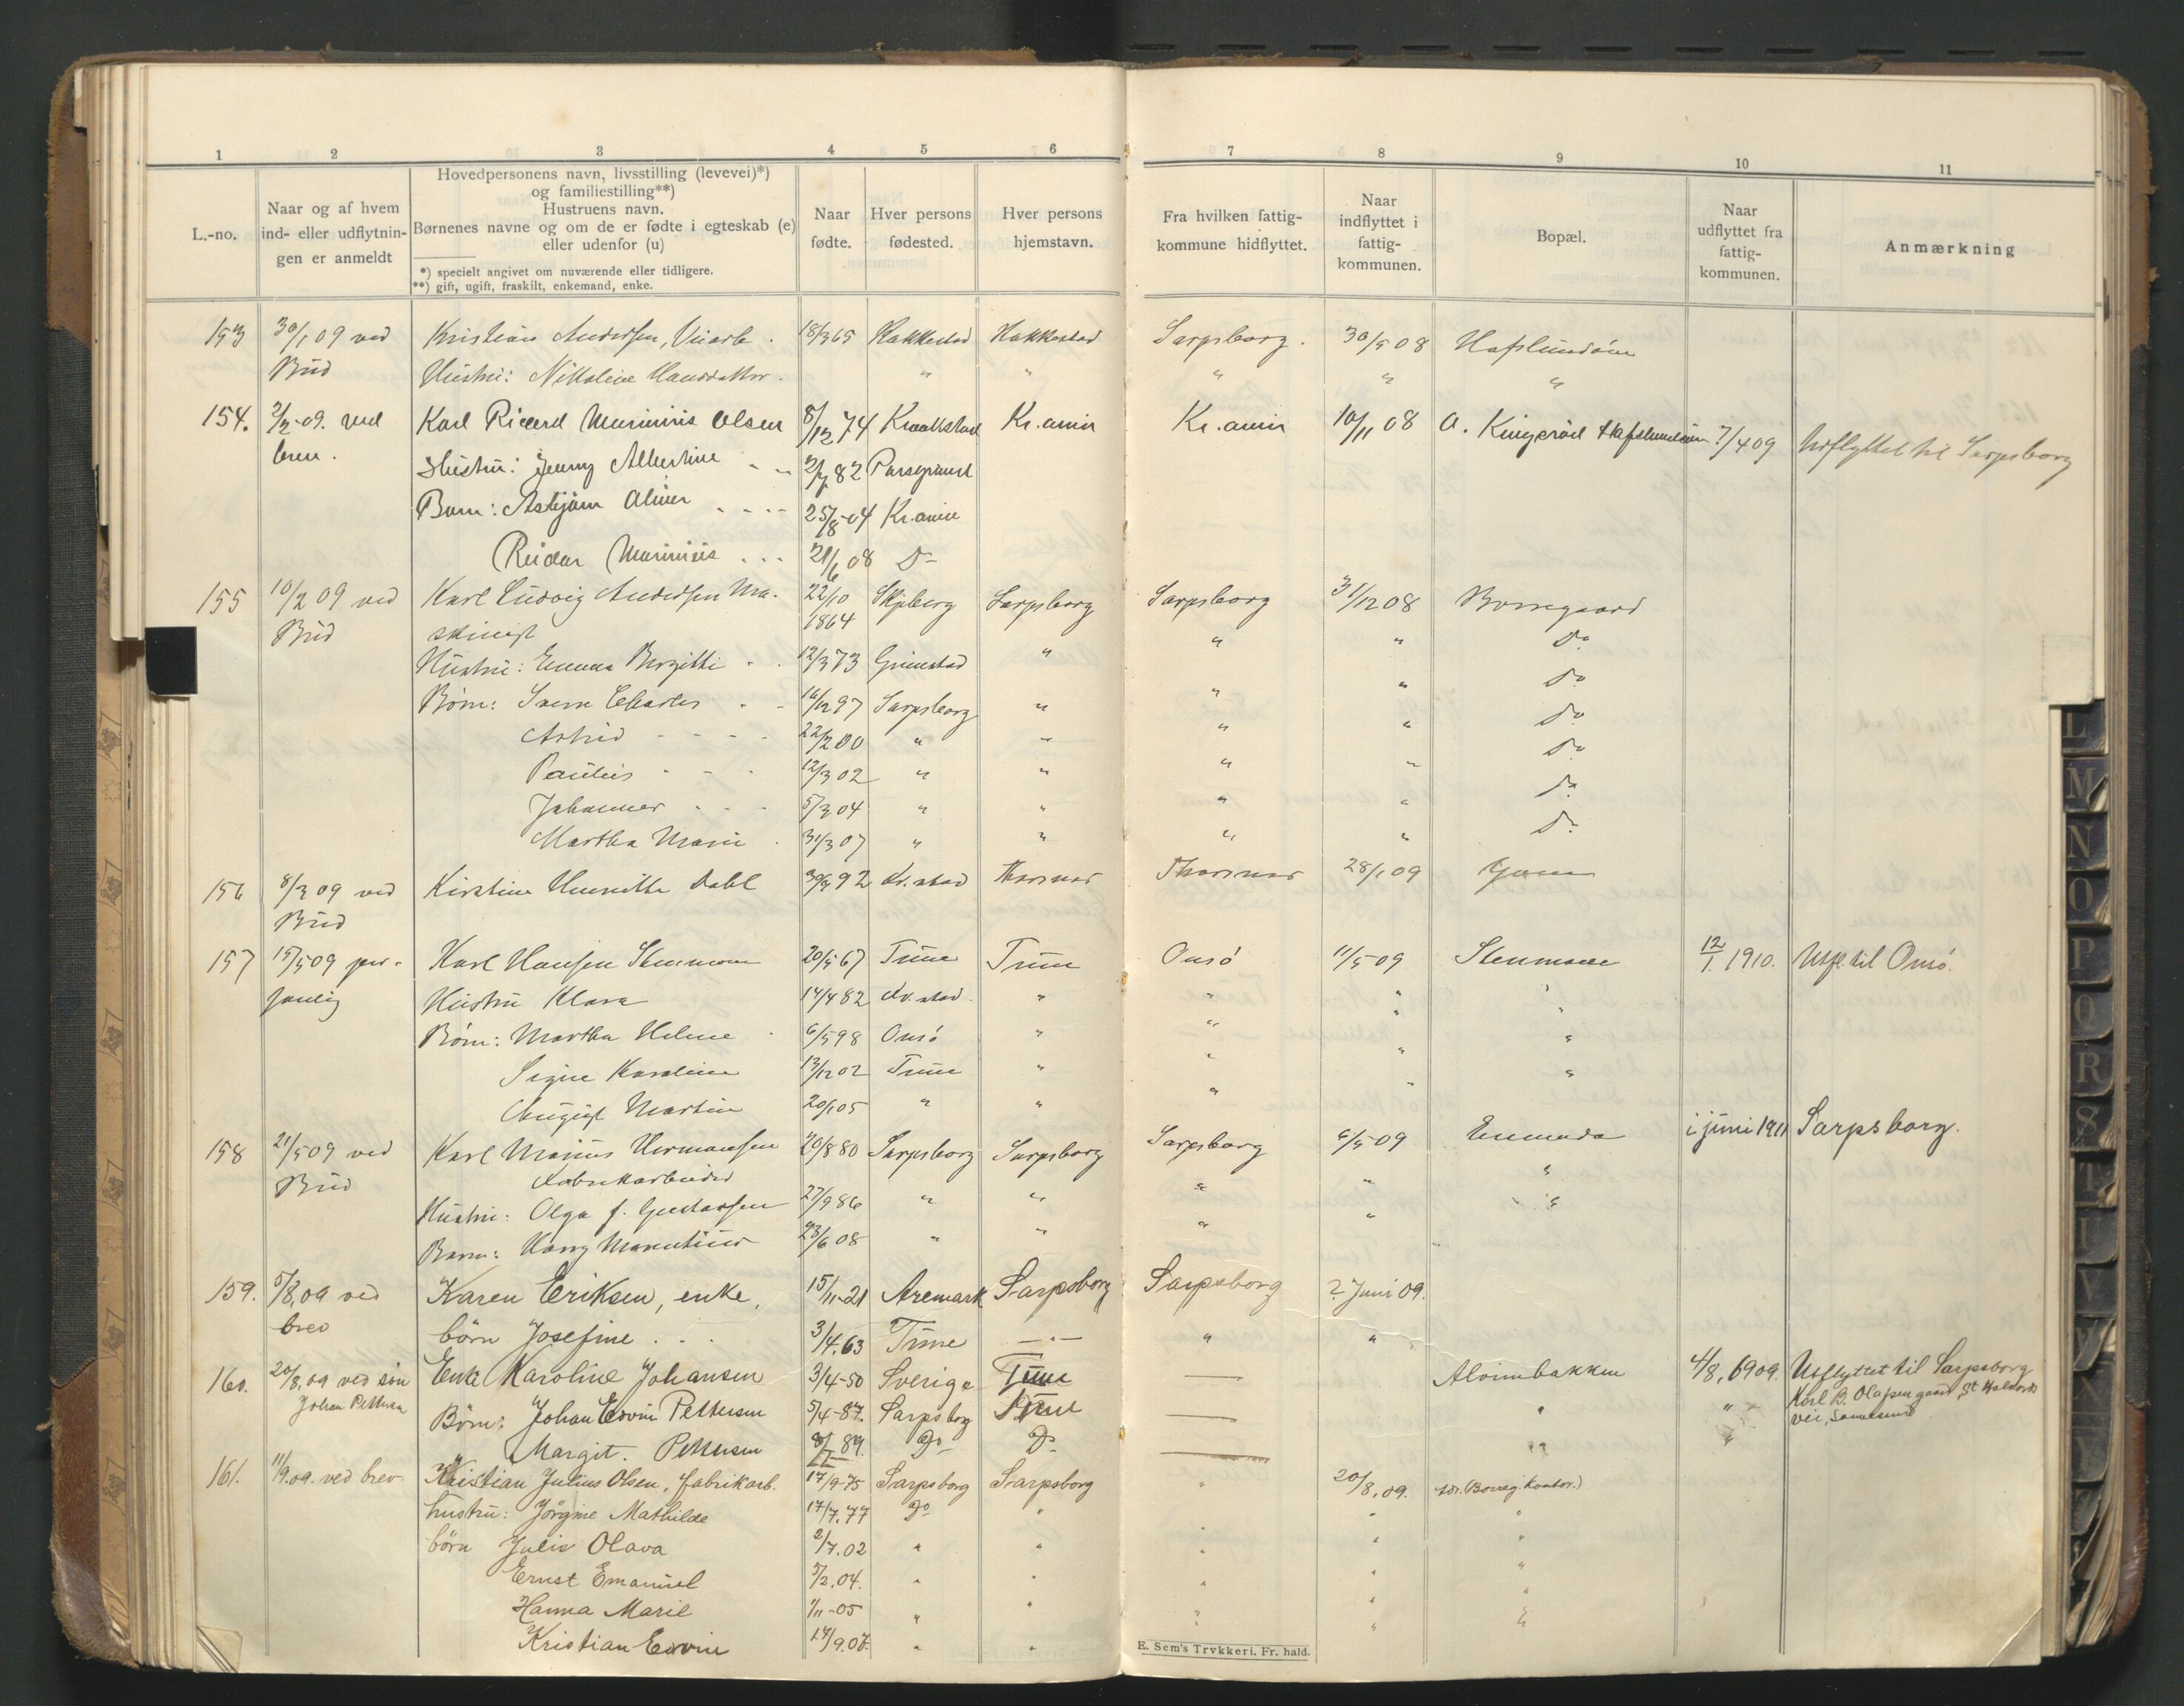 1 2 3 4 5 6 7 8 9 10 11
L.-no.
Naar og af hvem
ind- eller udflytnin-
gen er anmeldt
Hovedpersonens navn, livsstilling (levevei)*)
og familiestilling**)
Hustruens navn.
Børnenes navne og om de er fødte i egteskab (e)
eller udenfor (u)
*) specielt angivet om nuværende eller tidligere.
**) gift, ugift, fraskilt, enkemand, enke.
Naar
fødte.
Hver persons
fødested.
Hver persons
hjemstavn.
Fra hvilken fattig-
kommune hidflyttet.
Naar
indflyttet i
fattig-
kommunen.
Bopæl.
Naar
udflyttet fra
fattig-
kommunen.
Anmærkning
153 30/1 09 ved Kristian Andersen, 18/3 65 Rakkestad Rakkestad Sarpsborg. 30/5 08 Hafslundsøen
Bud Hustru: Nikoline Hansdatter. " " " " "
154. 2/2-09. ved Karl Ricard Marinius Olsen 8/12 74 Kraakstad Kr.ania Kr.ania 10/11 08 A. Kingsrød Hafslundsøen 7/4 09 Udflyttet til Sarpsborg
brev. Hustru: Jenny Albertine 2/7 82 Porsgrund
Barn: Asbjørn Oliver 25/8-04 Kr.ania
Reidar Marinius 21/6 08 Do
155 10/2 09 ved Karl Ludvig Andersen Ma- 22/10 Skjeberg Sarpsborg Sarpsborg 31/12 08 Borregaard
Bud skinist 1864 " " Do
Hustru: Emma Birgitte 12/3 73 Grimstad " " " Do
Børn: Sverre Charles 16/12 97 Sarpsborg " " " Do
Astrid 22/2 00 " " " " Do
Paulus 12/3 02 " " " " Do
Johannes 5/3 04 " " " " Do
Martha Marie 31/3 07 " "
156 8/3 09 ved Kirstine Henriette Dahl 30/9 92 Fr.stad Thorsnes Thorsnes 28/1 09
Bud
157 15/5 09 per- Karl Hansen Stenmoen 20/5 67 Tune Tune Onsø 11/5 09 Stenmoen 12/1. 1910. Utfl. til Onsø.
sonlig Hustru Klara 14/4 82 Fr.stad. " " " "
Børn: Martha Helene 6/5 98 Onsø " " " "
Signe Karoline 13/12 02 Tune " " " "
August Martin 20/1 05 " " " "
158 21/5 09 ved Karl Marius Hermansen 20/8 80 Sarpsborg Sarpsborg Sarpsborg 6/5 09 Enenda i juni 1911 Sarpsborg.
Bud Fabrikarbeider " " "
Hustru: Olga f. Gustavsen 27/9 86 " " " " "
Barn: Harry Marentius 23/6 08 " "
159. 5/8,09 ved Karen Eriksen, enke, 15/11-21 Aremark Sarpsborg Sarpsborg ? Juni 09.
brev børn Josefine 3/4.63 Tune —"— " "
160. 20/8,09 ved søn Enke Karoline Johansen 3/4-50 Sverige Tune — Alvimbakken 4/8, 6909. Utflyttet til Sarpsborg
Johan Pettersen Børn: Johan Edvin Pettersen 5/4-87. Sarpsborg Tune — " " Karl B. Olafsen gaard, St. Halvards
vei,
Margit. Pettersen 89. Do Do — " "
161. 11/9.09. ved brev Kristian Julius Olsen, fabrikarb. 17/9-75 Sarpsborg Sarpsborg " 20/8,09. (Borreg. kontor.)
hustru: Jørgine Mathilde 17/7.77 Do " " " "
børn Julie Olava 2/7.02 " " " " "
Ernst Emanuel 5/2.04. " " " " "
Hanna Marie 1/11-05 " " " " "
Kristian Edvin 17/9.07. " " "
E. Sem's Trykkeri. Fr. hald.
L
M
N
O
P
Q
R
S
T
U
V
W
X
Y